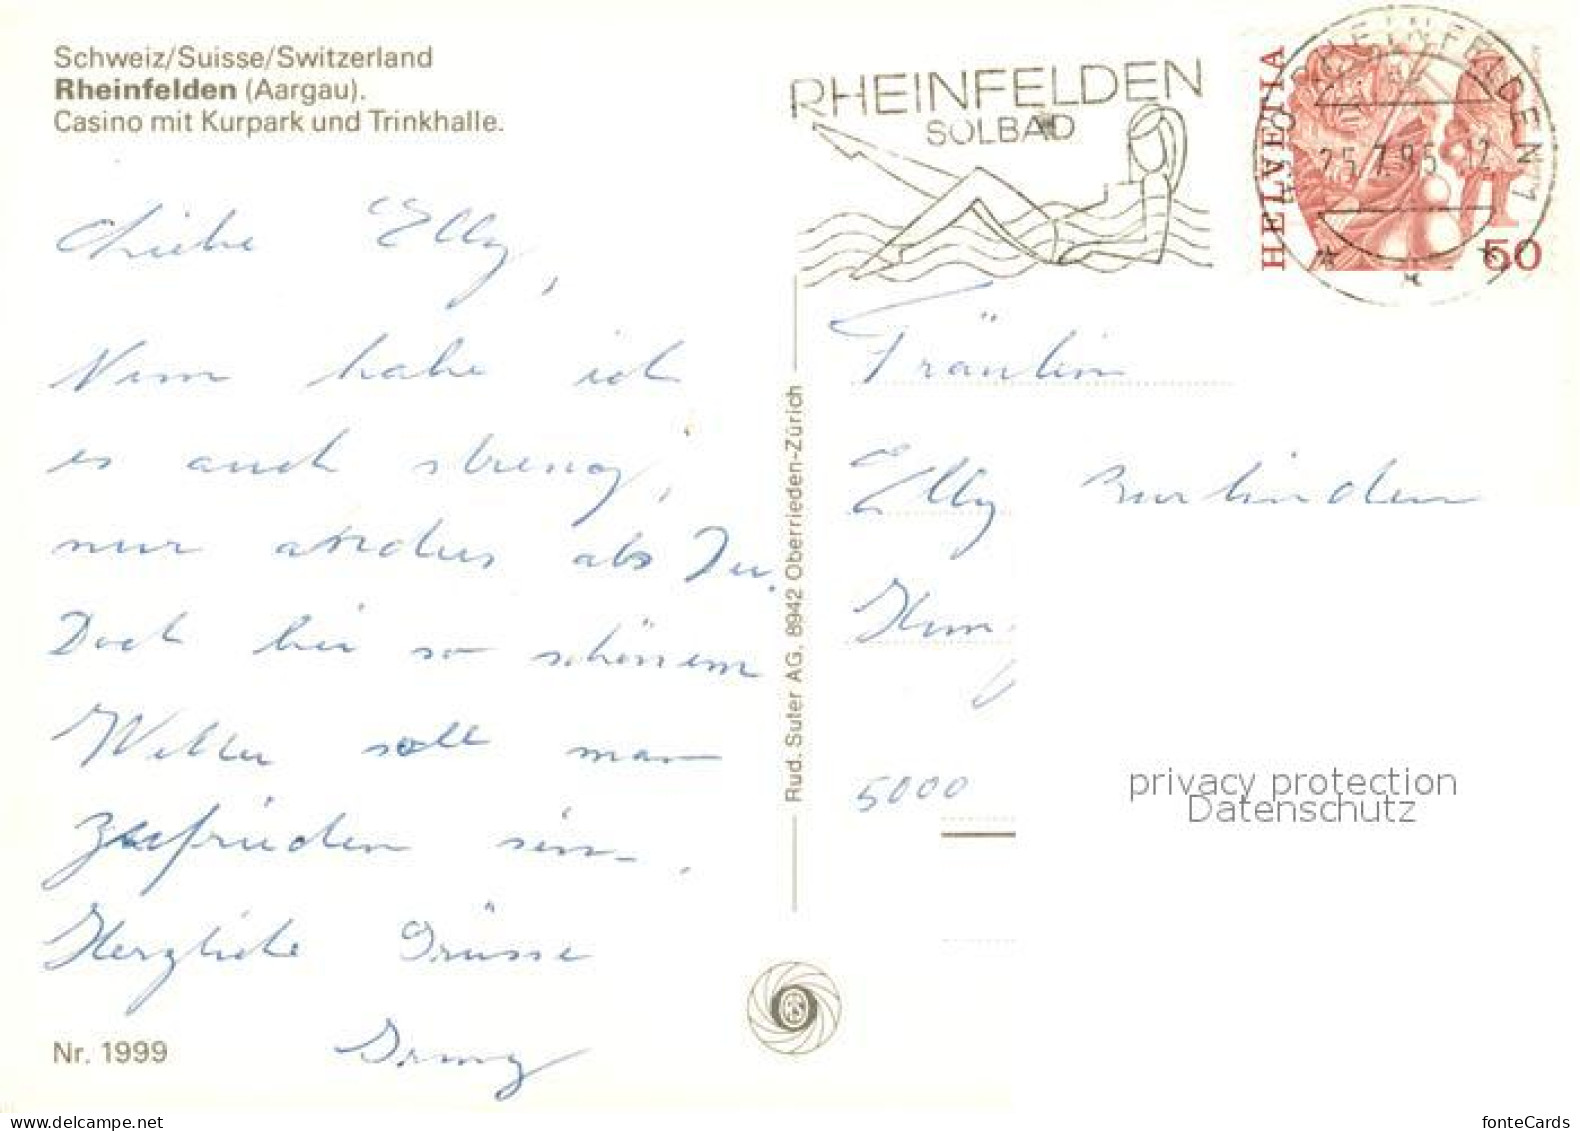 Schweiz/Suisse/Switzerland
Rheinfelden (Aargau).
Casino mit Kurpark und Trinkhalle.
RHEINFELDEN
SOLBAD
RHEINFELDEN 1
25.7.95-12
HELVETIA
50
Liebe Elly,
Nun habe ich
es auch streng,
nur anders als Du.
Doch bei so schönem
Wetter soll man
zufrieden sein.
Herzliche Grüsse
Irmy
Nr. 1999
Rud. Suter AG, 8942 Oberrieden-Zürich
Fräulein
Elly Zurlinden
5000
privacy protection
Datenschutz
fonteCards